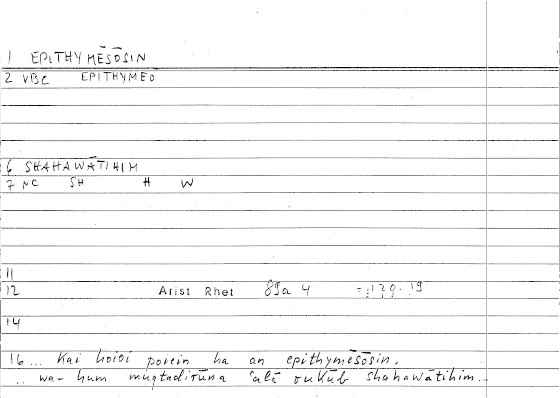 1 EPITHYMĒSŌSIN
2 VBC EPITHYMEO
6 SHAHAWĀTIHIM
7 NC SH H W
11
12 Arist Rhet 89a 4 =:129.19
14
16... Kai hoioi poiein ha an epithymēsōsin.
.. wa-hum muqtadirūna ʿalā rukūb shahawātihim...